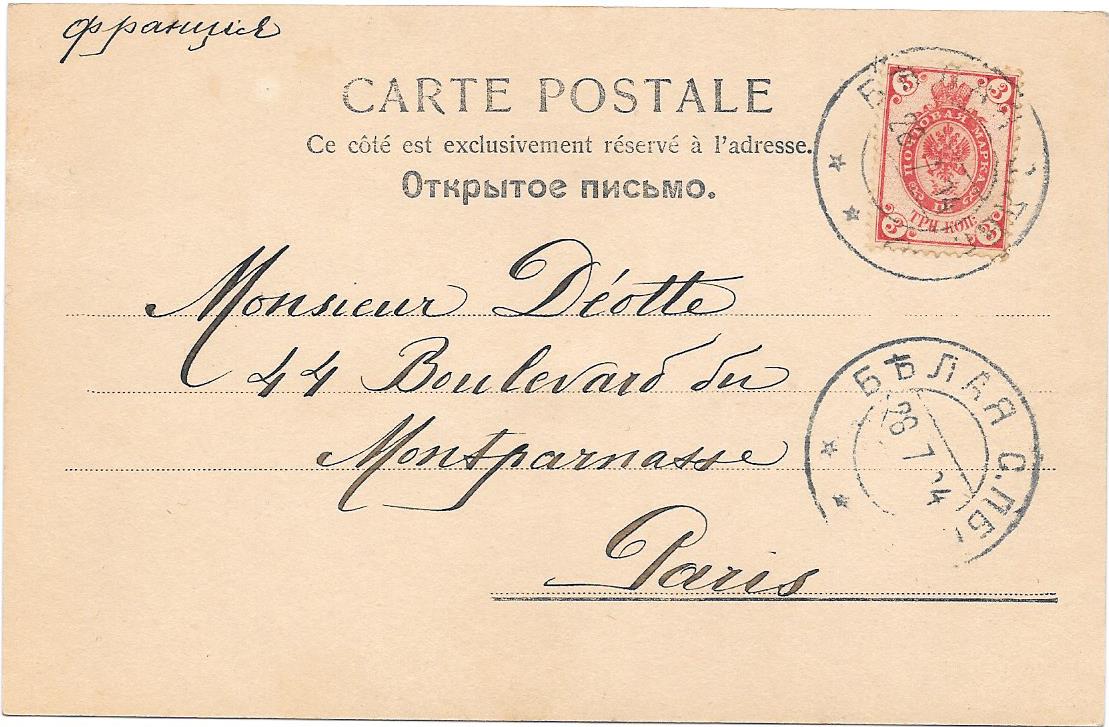 франція
CARTE POSTALE
Ce côté est exclusivement réservé à l'adresse.
Открытое письмо.
3 3
ПОЧТОВАЯ МАРКА
ТРИ КОП.
3 3
Monsieur Déotte
44 Boulevard du
Montparnasse
Paris
БѢЛАЯ С.ПБ.
28 7 04